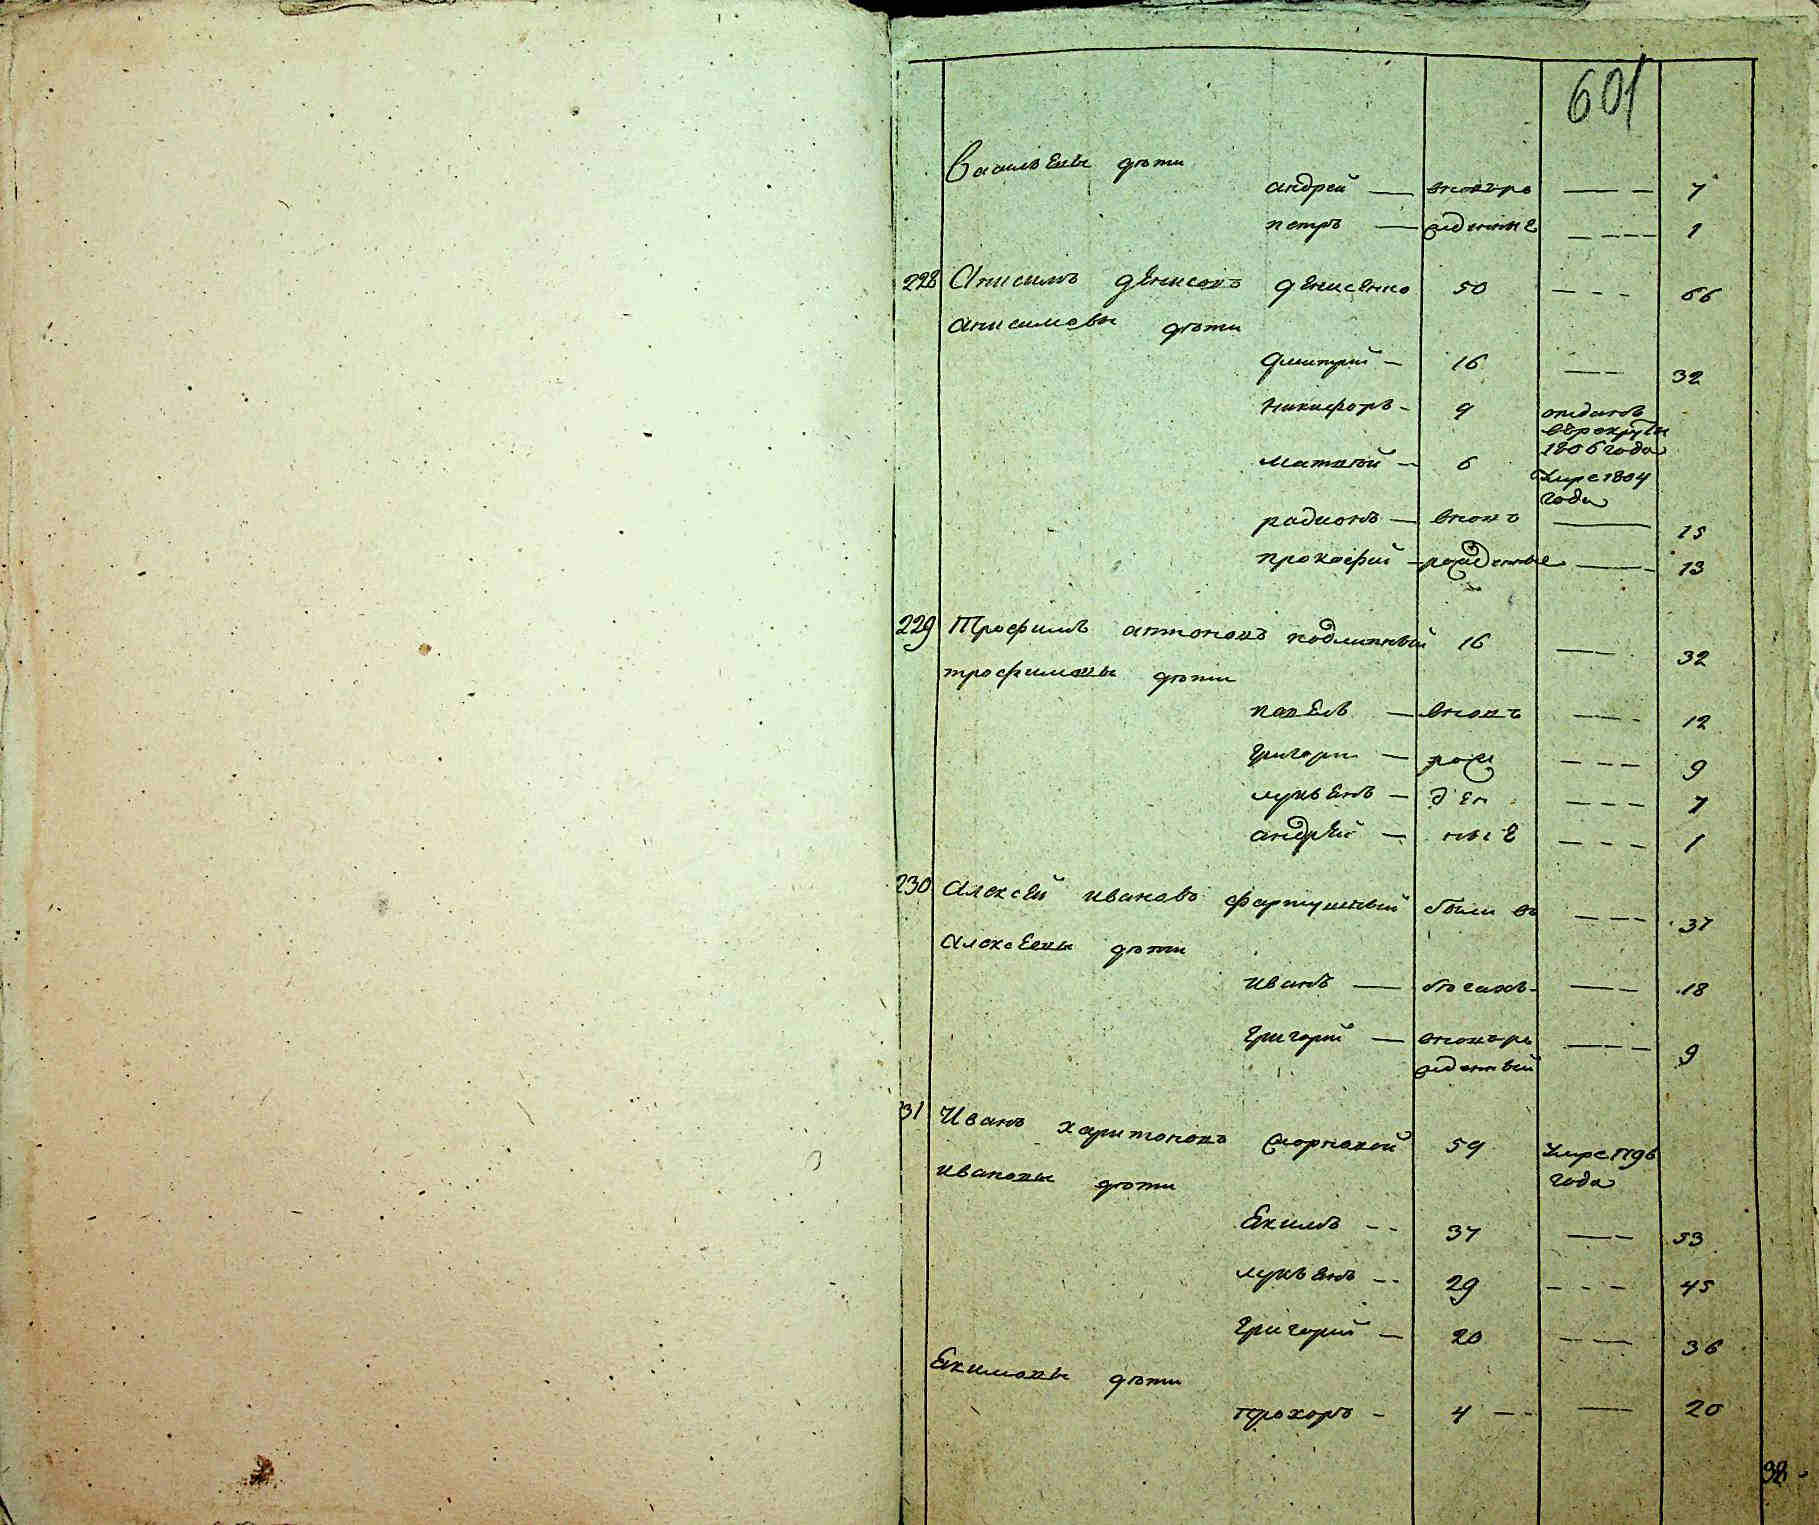 601
Васильевы дѣти
андрей — вновьро — — 7
петръ — жденные — — — 1
228 Анисимъ денисовъ денисенко 50 — — — 66
анисимовы дѣти
дмитрий — 16 — — 32
никифоръ - 9 отданъ
въ рекруты
1806 года
матвѣй — 6 умре 1804
года
радионъ — вновъ — 15
прокофий — рожденные — 13
229 Трофимъ антоновъ подлипный 16 — — 32
трофимовы дѣти
павелъ — вновъ — — - 12
григори — рож — — — 9
лукьянъ — ден — — — 7
андрей — ные — — — 1
230 Алексей ивановъ фартушный были въ — — — 37
Алексеевы дѣти
иванъ — бѣгахъ — — 18
григорий — вновъро — — 9
жденный
31 Иванъ харитоновъ 59 умре 1796
ивановы дѣти года
Екимъ - - 37 — — 53
лукьянъ - - 29 - - - 45
григорий — 20 — — 36
Екимовы дѣти
прохоръ - 4 — - — 20
38